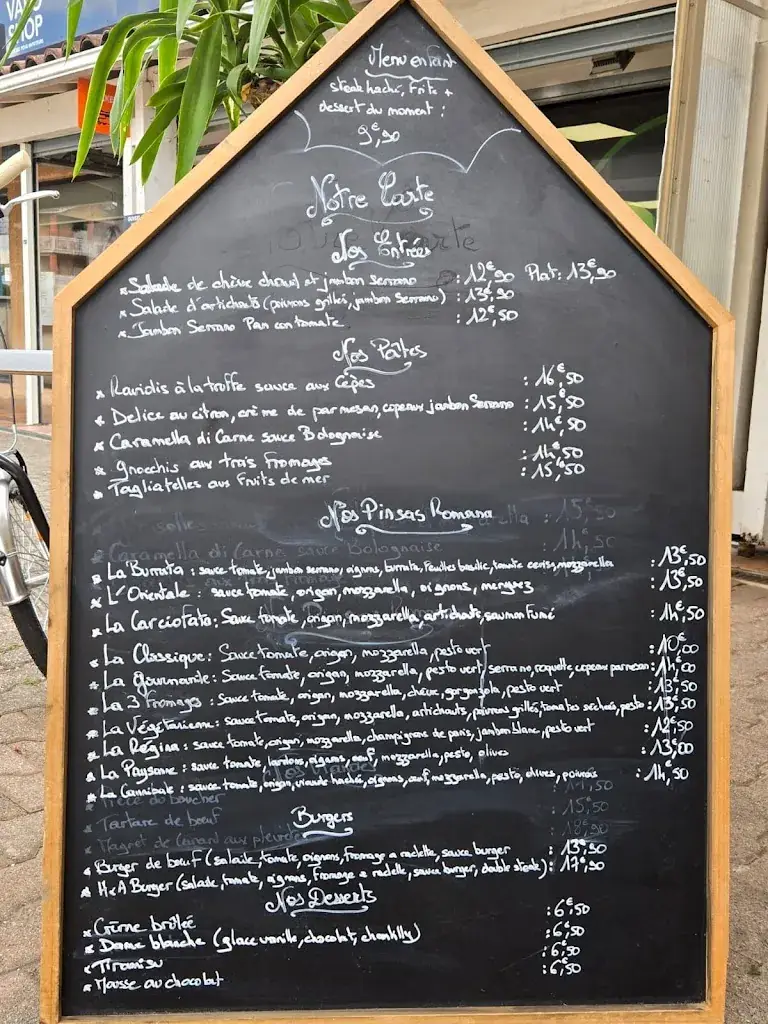 VA
SHOP
Menu enfant
steak haché, frite +
dessert du moment :
9€,90
Notre Carte
Nos Entrées
* Salade de chèvre chaud et jambon serrano : 12€,90 Plat : 13€,90
* Salade d'artichauts (poivrons grillés, jambon serrano) : 13€,90
* Jambon Serrano Pan con tomate : 12€,50
Nos Pâtes
* Raviolis à la truffe sauce aux Cèpes : 16€,50
* Delice au citron, crème de parmesan, copeaux jambon Serrano : 15€,50
* Caramella di Carne sauce Bolognaise : 14€,50
* gnocchis aux trois fromages : 14€,50
* Tagliatelles aux Fruits de mer : 15€,50
Nos Pinsas Romana
* La Burrata : sauce tomate, jambon serrano, oignons, burrata, feuilles basilic, tomate cerise, mozzarella : 13€,50
* L'Orientale : sauce tomate, origan, mozzarella, oignons, merguez : 13€,50
* La Carciofata : Sauce tomate, origan, mozzarella, artichauts, saumon fumé : 14€,50
* La Classique : Sauce tomate, origan, mozzarella, pesto vert : 10€,00
* La gourmande : Sauce tomate, origan, mozzarella, pesto vert, serrano, roquette, copeaux parmesan : 14€,00
* La 3 fromages : sauce tomate, origan, mozzarella, chèvre, gorgonzola, pesto vert : 13€,50
* La Végétarienne : sauce tomate, origan, mozzarella, artichauts, poivrons grillés, tomates séchées, pesto : 13€,50
* La Régina : sauce tomate, origan, mozzarella, champignons de paris, jambon blanc, pesto vert : 12€,50
* La Paysanne : sauce tomate, lardons, oignons, oeuf, mozzarella, pesto, olives : 13€,00
* La Cannibale : sauce tomate, origan, viande hachée, oignons, oeuf, mozzarella, pesto, olives, poivrons : 14€,50
Burgers
* Burger de boeuf (salade, tomate, oignons, fromage a raclette, sauce burger : 13€,50
* HxA Burger (salade, tomate, oignons, fromage a raclette, sauce burger, double steak) : 17€,90
Nos Desserts
* Crème brûlée : 6€,50
* Dame blanche (glace vanille, chocolat, chantilly) : 6€,50
* Tiramisu : 6€,50
* Mousse au chocolat : 6€,50